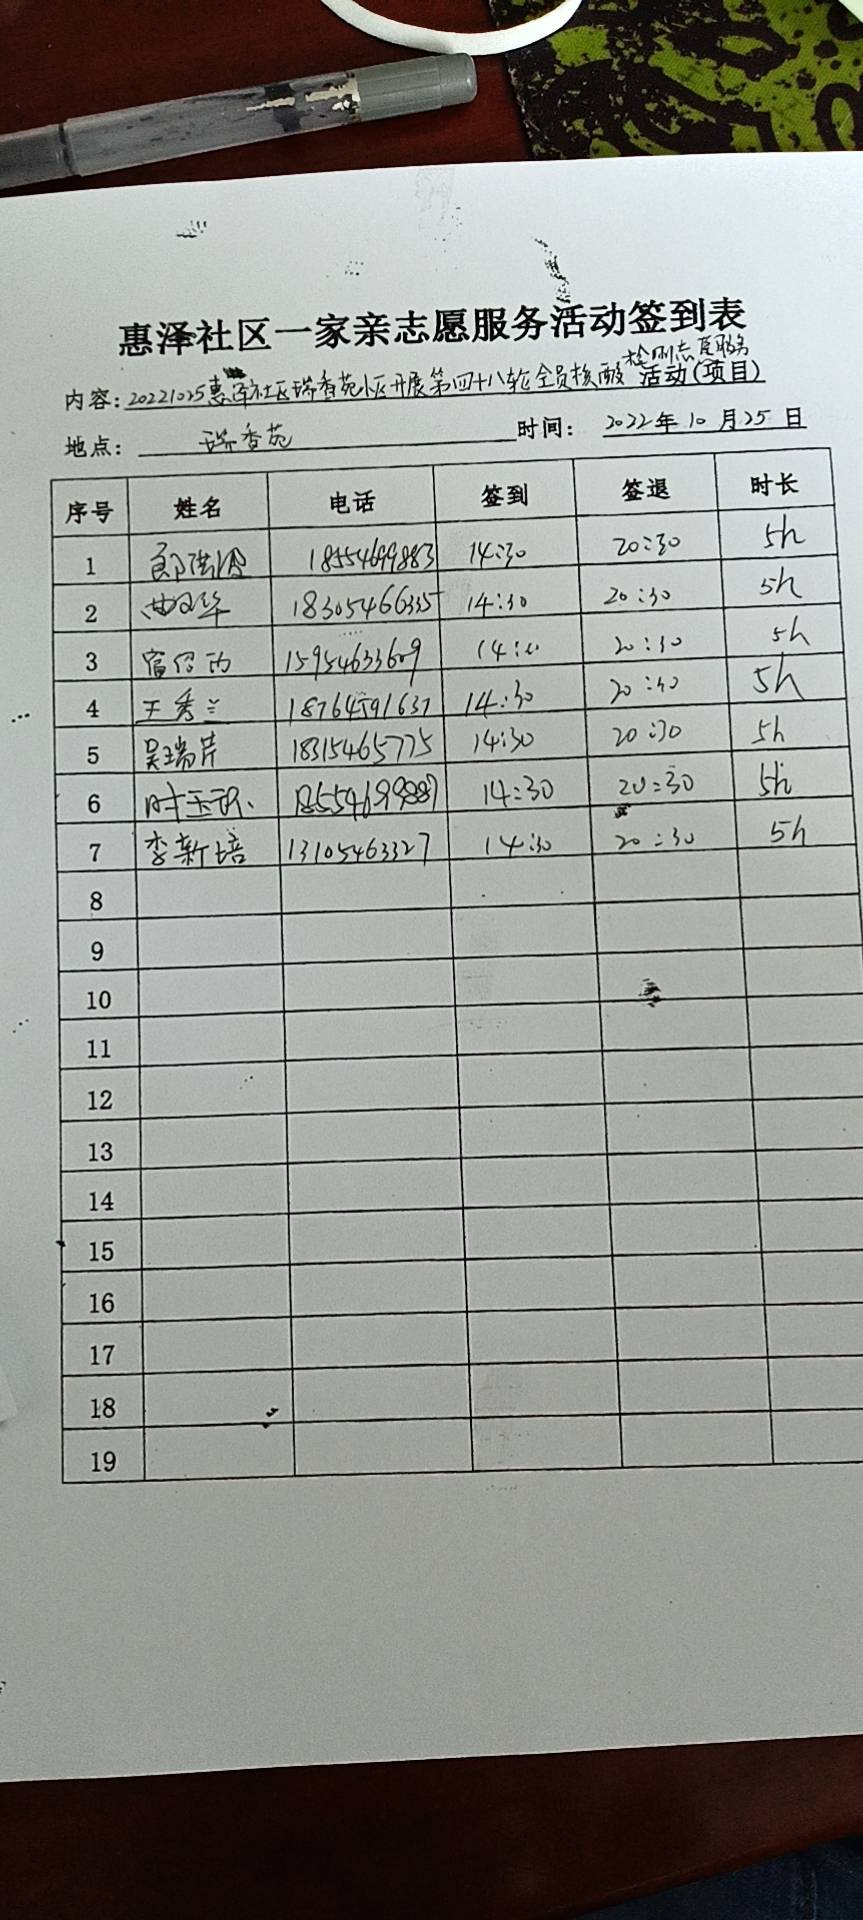 惠泽社区一家亲志愿服务活动签到表
检测志愿服务
内容：20221025惠泽社区瑞香苑小区开展第四十八轮全员核酸活动（项目）
地点： 瑞香苑 时间： 2022年10月25日
序号 姓名 电话 签到 签退 时长
1 18554699883 14:30 20:30 5h
2 18305466335 14:30 20:30 5h
3 15954633609 20:30 5h
4 王秀兰 18764591637 14:30 20:30 5h
5 吴瑞芹 18315465775 14:30 20:30 5h
6 14:30 20:30 5h
7 李新培 13105463327 14:30 20:30 5h
8
9
10
11
12
13
14
15
16
17
18
19